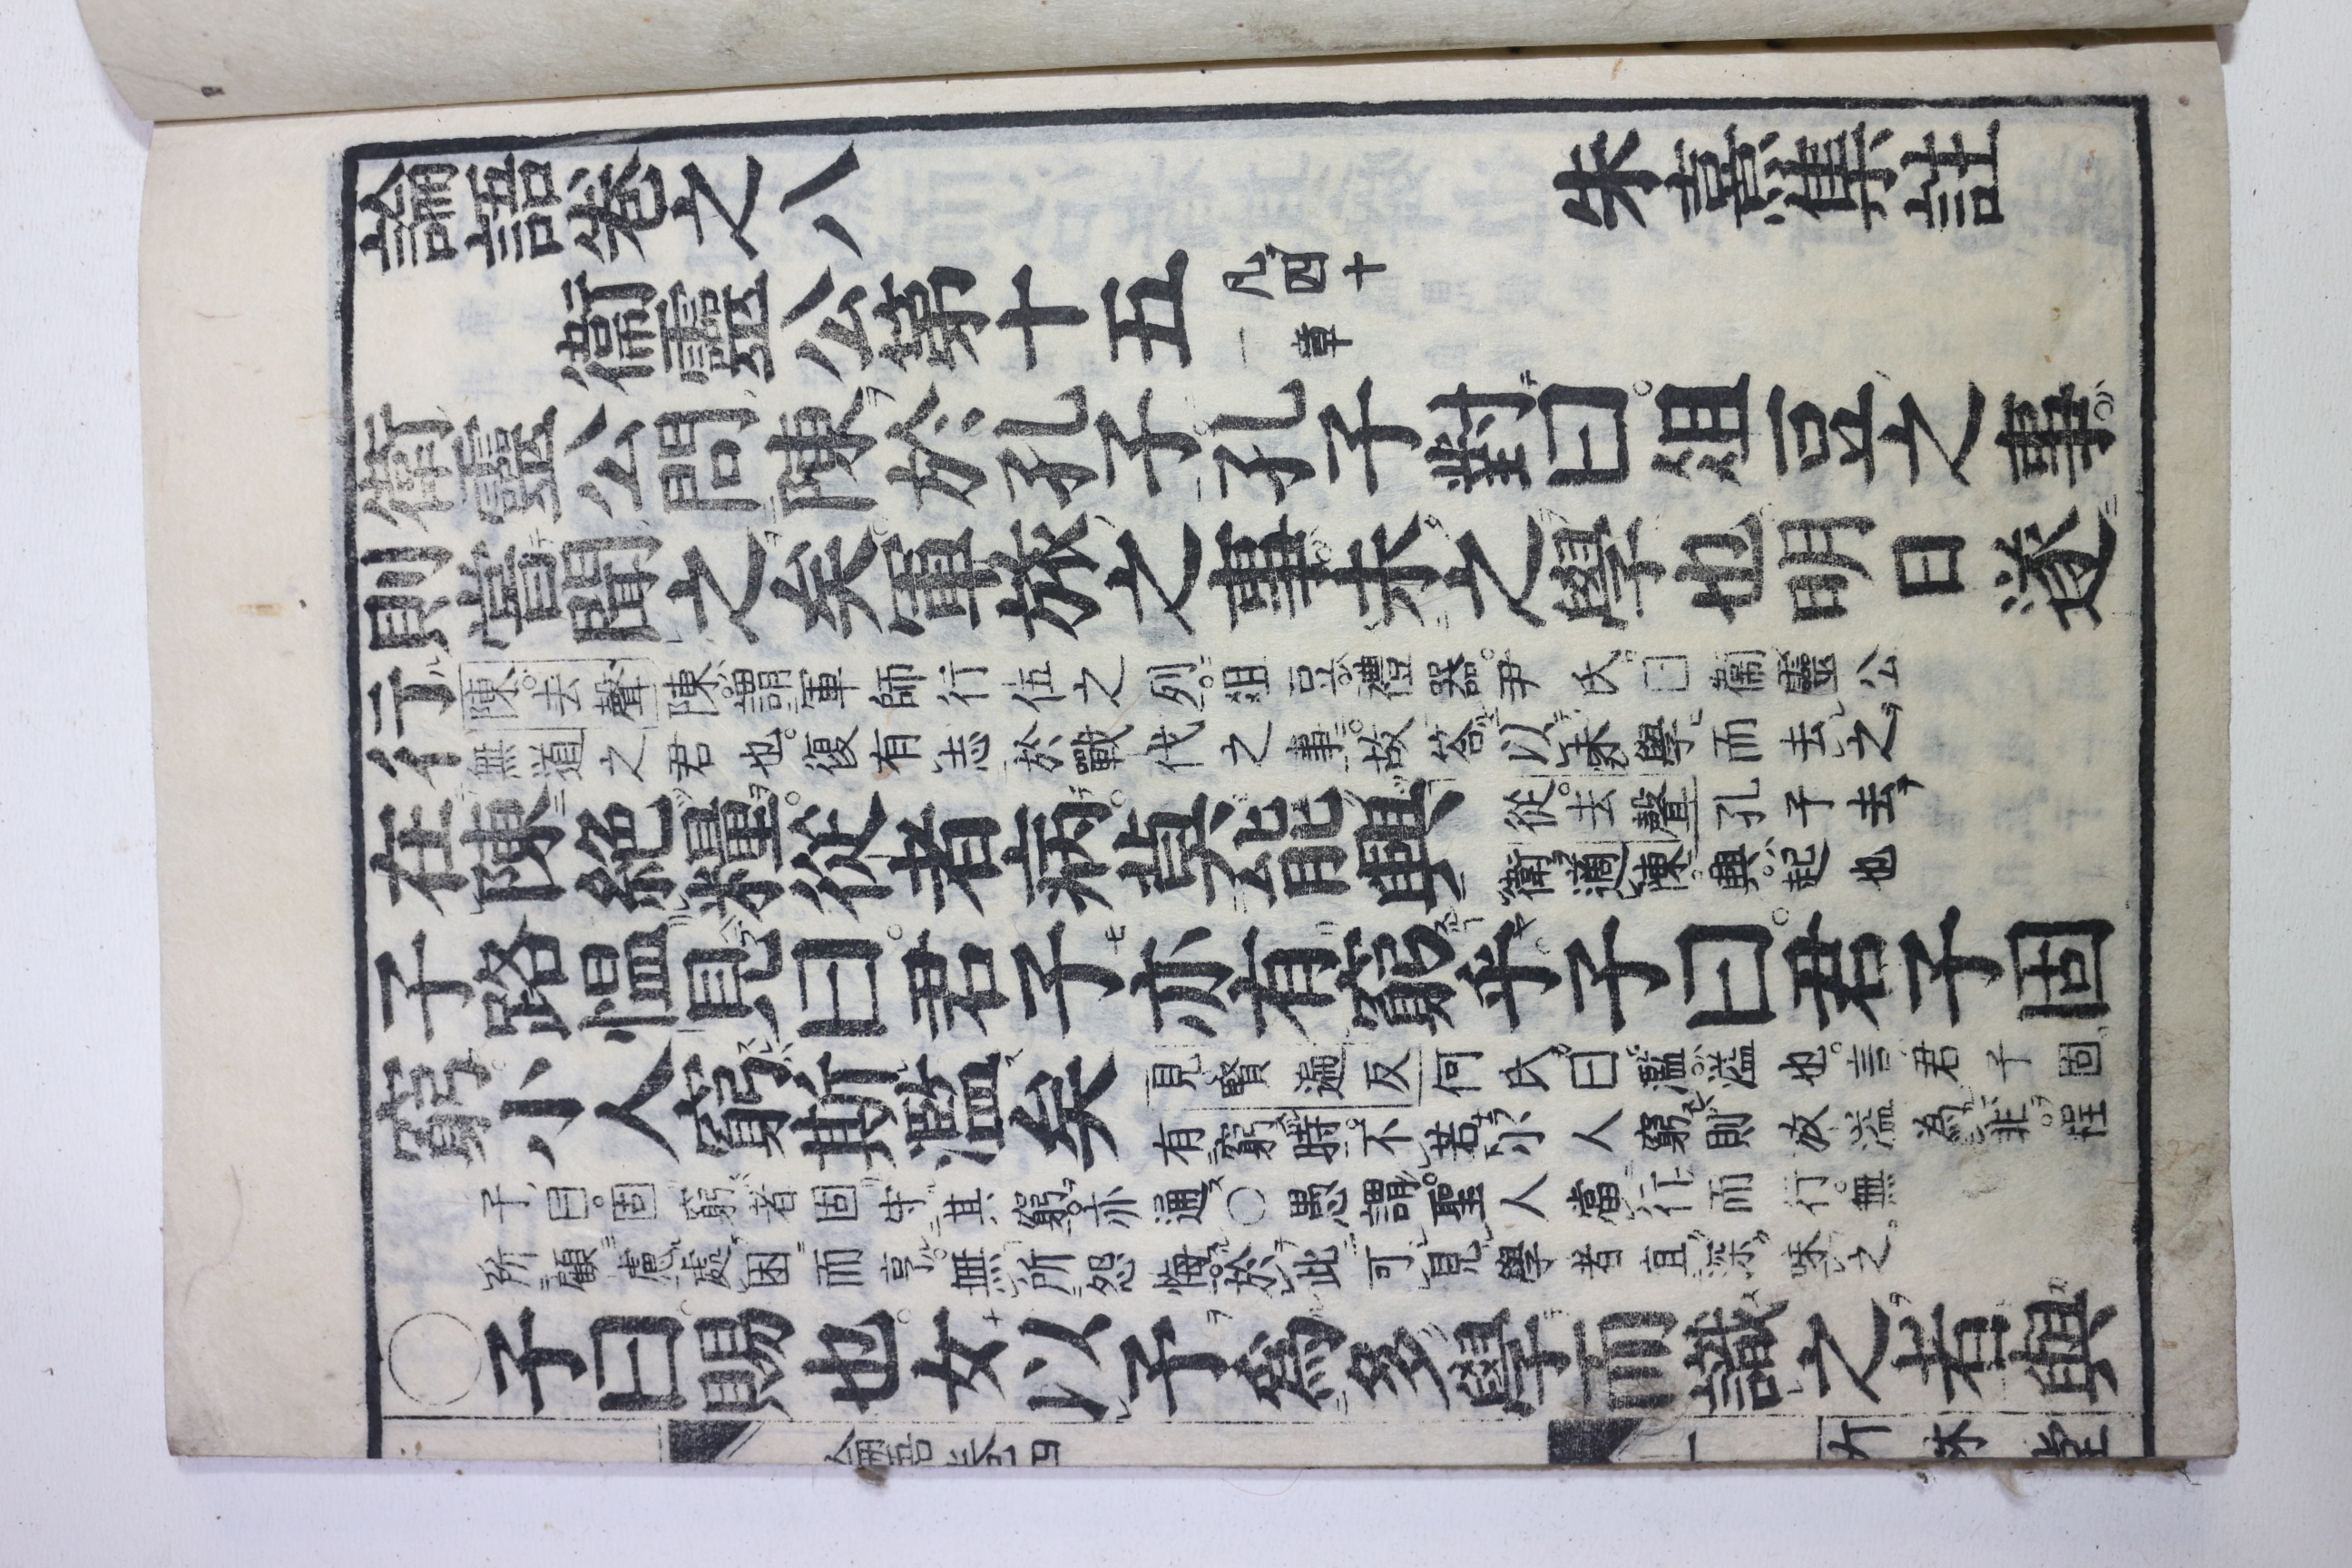 論語卷之八 朱熹集註
衞靈公第十五 凡四十
一章
衞靈公問陳於孔子孔子對曰俎豆之事
則嘗聞之矣軍旅之事未之學也明日遂
行 陳去聲陳謂軍師行伍之列俎豆禮器尹氏曰衞靈公
無道之君也復有志於戰伐之事故答以未學而去之
在陳絶糧從者病莫能興 從去聲孔子去
衞適陳興起也
子路慍見曰君子亦有窮乎子曰君子固
窮小人窮斯濫矣 見賢遍反何氏曰濫溢也言君子固
有窮時不若小人窮則放溢為非程
子曰固窮者固守其窮亦通○愚謂聖人當行而行無
所顧慮處困而亨無所怨悔於此可見學者宜深味之
○子曰賜也女以予爲多學而識之者與